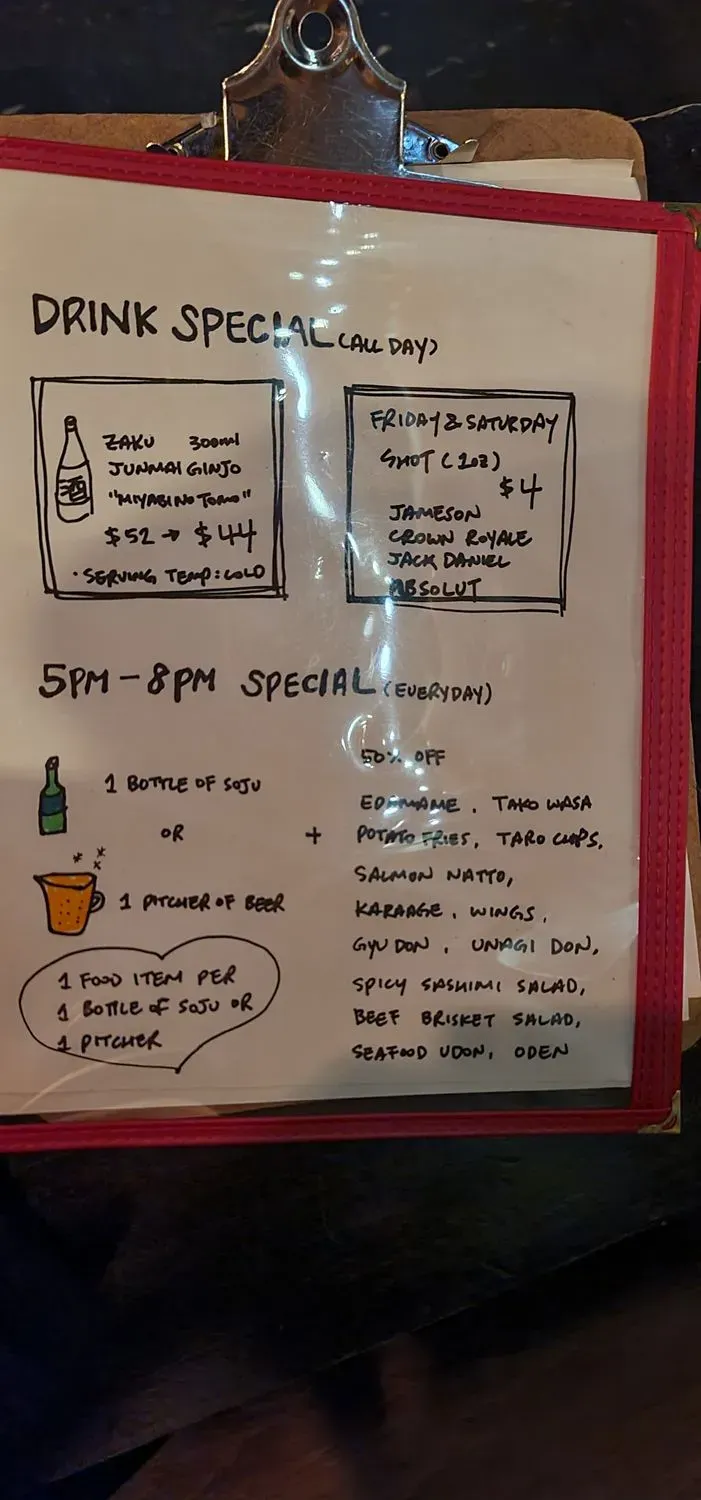 DRINK SPECIAL (ALL DAY)
ZAKU 300ml
JUNMAI GINJO
"MIYABI NO TOMO"
$52 → $44
· SERVING TEMP: COLD
FRIDAY & SATURDAY
SHOT (1oz)
$4
JAMESON
CROWN ROYALE
JACK DANIEL
ABSOLUT
5PM - 8PM SPECIAL (EVERYDAY)
1 BOTTLE OF SOJU
OR
1 PITCHER OF BEER
1 FOOD ITEM PER
1 BOTTLE OF SOJU OR
1 PITCHER
+
50% OFF
EDAMAME, TAKO WASA
POTATO FRIES, TARO CHIPS,
SALMON NATTO,
KARAAGE, WINGS,
GYU DON, UNAGI DON,
SPICY SASHIMI SALAD,
BEEF BRISKET SALAD,
SEAFOOD UDON, ODEN